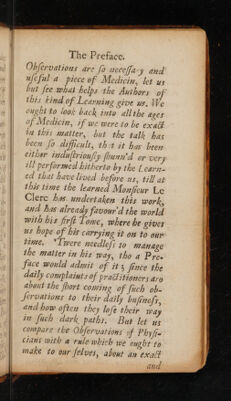 The Preface.
Observations are so necessa y and
useful a piece of Medicin, let us
but see what helps the Authors of
this kind of Learning give us. We
ought to look back into all the ages
of Medicin, if we were to be exact
in this matter, but the task has
been so difficult, that it has been
either industriously shunn'd or very
ill performed hitherto by the Learn-
ed that have lived before us, till at
this time the learned Monsieur Le
Clerc has undertaken this work,
and has already favour'd the world
with his first Tome, where he gives
us hope of his carrying it on to our
time. 'Twere needless to manage
the matter in his way, tho a Pre-
face would admit of it; since the
daily complaints of practitioners are
about the short coming of such ob-
servations to their daily business,
and how often they lose their way
in such dark paths. But let us
compare the Observations of Physi-
cians with a rule which we ought to
make to our selves, about an exact
and